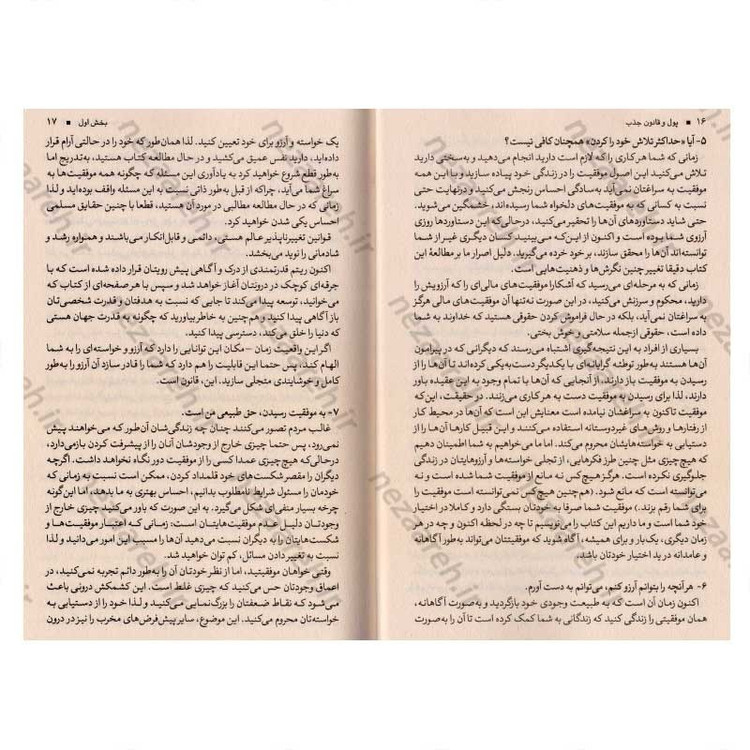 ۱۶ ■ پول و قانون جذب
۵- آیا «حداکثر تلاش خود را کردن» همچنان کافی نیست؟
زمانی که شما هر کاری را که لازم است دارید انجام می‌دهید و به‌سختی دارید
تلاش می‌کنید این اصول موفقیت را در زندگی خود پیاده سازید و با این‌همه
موفقیت به سراغتان نمی‌آید به‌سادگی احساس رنجش می‌کنید و در نهایت حتی
نسبت به کسانی که به موفقیت‌های دلخواه شما رسیده‌اند، خشمگین می‌شوید.
حتی شاید دستاوردهای آن‌ها را تحقیر می‌کنید، درحالی‌که این دستاوردها روزی
آرزوی شما بوده است و اکنون از این‌که می‌بینید کسان دیگری غیر از شما
توانسته‌اند آن‌ها را محقق سازند، بر خود خرده می‌گیرید. دلیل اصرار ما بر مطالعهٔ این
کتاب دقیقا تغییر چنین نگرش‌ها و ذهنیت‌هایی است.
زمانی که به مرحله‌ای می‌رسید که آشکارا موفقیت‌های مالی‌ای را که آرزویش را
دارید، محکوم و سرزنش می‌کنید، در این صورت نه‌تنها آن موفقیت‌های مالی هرگز
به سراغتان نمی‌آید، بلکه در حال فراموش کردن حقوقی هستید که خداوند به شما
داده است، حقوقی ازجمله سلامتی و خوش بختی.
بسیاری از افراد به این نتیجه‌گیری اشتباه می‌رسند که دیگرانی که در پیرامون
آن‌ها هستند به‌طور توطئه گرایانه‌ای با یکدیگر دست‌به‌یکی کرده‌اند تا آن‌ها را از
رسیدن به موفقیت باز دارند. از آنجایی که آن‌ها با تمام وجود به این عقیده باور
دارند، لذا برای رسیدن به موفقیت دست به هر کاری می‌زنند. در حقیقت، این‌که
موفقیت تاکنون به سراغشان نیامده است معنایش این است که آن‌ها در محیط کار
از رفتارها و روش‌های غیردوستانه استفاده می‌کنند و این قبیل کارها آن‌ها را از
دستیابی به خواسته‌هایشان محروم می‌کند. اما ما می‌خواهیم به شما اطمینان دهیم
که هیچ‌چیزی مثل چنین طرز فکرهایی، از تجلی خواسته‌ها و آرزوهایتان در زندگی
محروم نکرده است. هرگز هیچ‌کس نه از موفقیت شما مانع شده است و نه
می‌توانسته است که مانع شود. (هم‌چنین هیچ‌کس نمی‌توانسته است موفقیت را
برای شما رقم بزند.) موفقیت شما صرفا به خودتان بستگی دارد و کاملا در اختیار
خود شما است و ما داریم این کتاب را می‌نویسیم تا چه در لحظه اکنون و چه در هر
زمان دیگری، یک‌بار و برای همیشه، آگاه شوید که موفقیتتان می‌تواند به‌طور آگاهانه
و عامدانه در ید اختیار خودتان باشد.
۶- هر آنچه را بتوانم آرزو کنم، می‌توانم به دست آورم.
اکنون زمان آن است که به طبیعت وجودی خود بازگردید و به‌صورت آگاهانه،
همان موفقیتی را زندگی کنید که زندگانی به شما کمک کرده است تا آن را به‌صورت
بخش اول ■ ۱۷
یک خواسته و آرزو برای خود تعیین کنید. لذا همان‌طور که خود را در حالتی آرام قرار
داده‌اید، دارید نفس عمیق می‌کشید و در حال مطالعه کتاب هستید، به‌تدریج اما
به‌طور قطع شروع خواهید کرد به یادآوری این مسئله که چگونه همه موفقیت‌ها به
سراغ شما می‌آید، چراکه از قبل به‌طور ذاتی نسبت به این مسئله واقف بوده‌اید و لذا
زمانی که در حال مطالعه مطالبی در مورد آن هستید، قطعا با چنین حقایق مسلمی
احساس یکی شدن خواهید کرد.
قوانین تغییرناپذیر عالم هستی، دائمی و قابل‌اتکار می‌باشند و همواره رشد و
شادمانی را نوید می‌بخشد.
اکنون ریتم قدرتمندی از درک و آگاهی پیش رویتان قرار داده شده است که با
جرفه‌ای کوچک در درونتان آغاز خواهد شد و سپس با هر صفحه‌ای از کتاب که
می‌خوانید، توسعه پیدا می‌کند تا جایی که نسبت به هدفتان و قدرت شخصی‌تان
باز آگاهی پیدا کنید و هم‌چنین به خاطر بیاورید که چگونه به قدرت جهان هستی
که دنیا را خلق می‌کند، دسترسی پیدا کنید.
اگر این واقعیت زمان –مکان این توانایی را دارد که آرزو و خواسته‌ای را به شما
الهام کند، پس حتما این قابلیت را هم دارد که شما را قادر سازد آن آرزو را به‌طور
کامل و خوشایندی متجلی سازید. این، قانون است.
۷- به موفقیت رسیدن، حق طبیعی من است.
غالب مردم تصور می‌کنند چنان چه زندگی‌شان آن‌طور که می‌خواهند پیش
نمی‌رود، پس حتما چیزی خارج از وجودشان آنان را از پیشرفت کردن بازمی‌دارد،
درحالی‌که هیچ‌چیزی عمدا کسی را از موفقیت دور نگاه نخواهد داشت. اگرچه
دیگران را مقصر شکست‌های خود قلمداد کردن، ممکن است نسبت به زمانی که
خودمان را مسئول شرایط نامطلوب بدانیم، احساس بهتری به ما بدهد، اما این‌گونه
چرخه بسیار منفی‌ای شکل می‌گیرد. به این صورت که باور می‌کنید چیزی خارج از
وجودتان دلیل عدم موفقیت‌هایتان است: زمانی که اعتبار موفقیت‌ها و
شکست‌هایتان را به دیگران نسبت می‌دهید آن‌ها را مسبب این امور می‌دانید و لذا
نسبت به تغییر دادن مسائل، کم توان خواهید شد.
وقتی خواهان موفقیتید، اما از نظر خودتان آن را به‌طور دائم تجربه نمی‌کنید، در
اعماق وجودتان حس می‌کنید که چیزی غلط است. این کشمکش درونی باعث
می‌شود که نقاط ضعفتان را بزرگ‌نمایی می‌کنید و لذا خود را از دستیابی به
خواسته‌تان محروم می‌کنید. این موضوع، سایر پیش‌فرض‌های مخرب را نیز در درون
nezaareh.ir